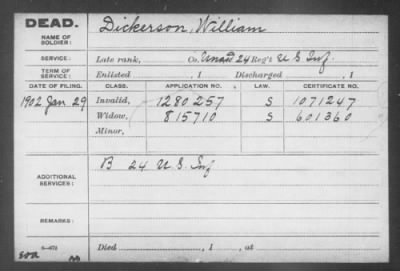 DEAD. Dickerson, William
NAME OF SOLDIER:
SERVICE: Late rank, Co. Unad 24 Reg't U S Inf.
TERM OF SERVICE: Enlisted , 1 Discharged , 1
DATE OF FILING. CLASS. APPLICATION NO. LAW. CERTIFICATE NO.
1902 Jan 29 Invalid, 1280257 S 1071247
Widow, 815710 S 601360
Minor,
B 24 U. S. Inf
ADDITIONAL SERVICES:
REMARKS:
Died , 1 , at